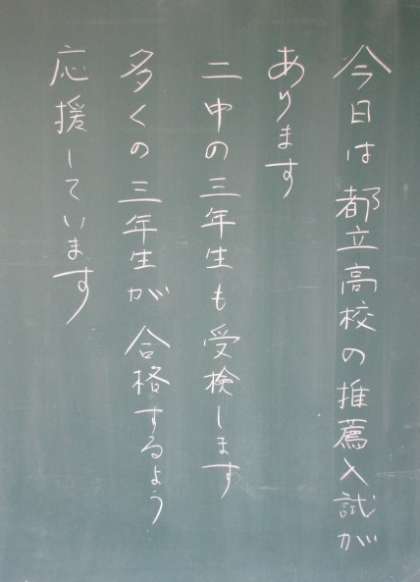 今日は都立高校の推薦入試が
あります
二中の三年生も受検します
多くの三年生が合格するよう
応援しています